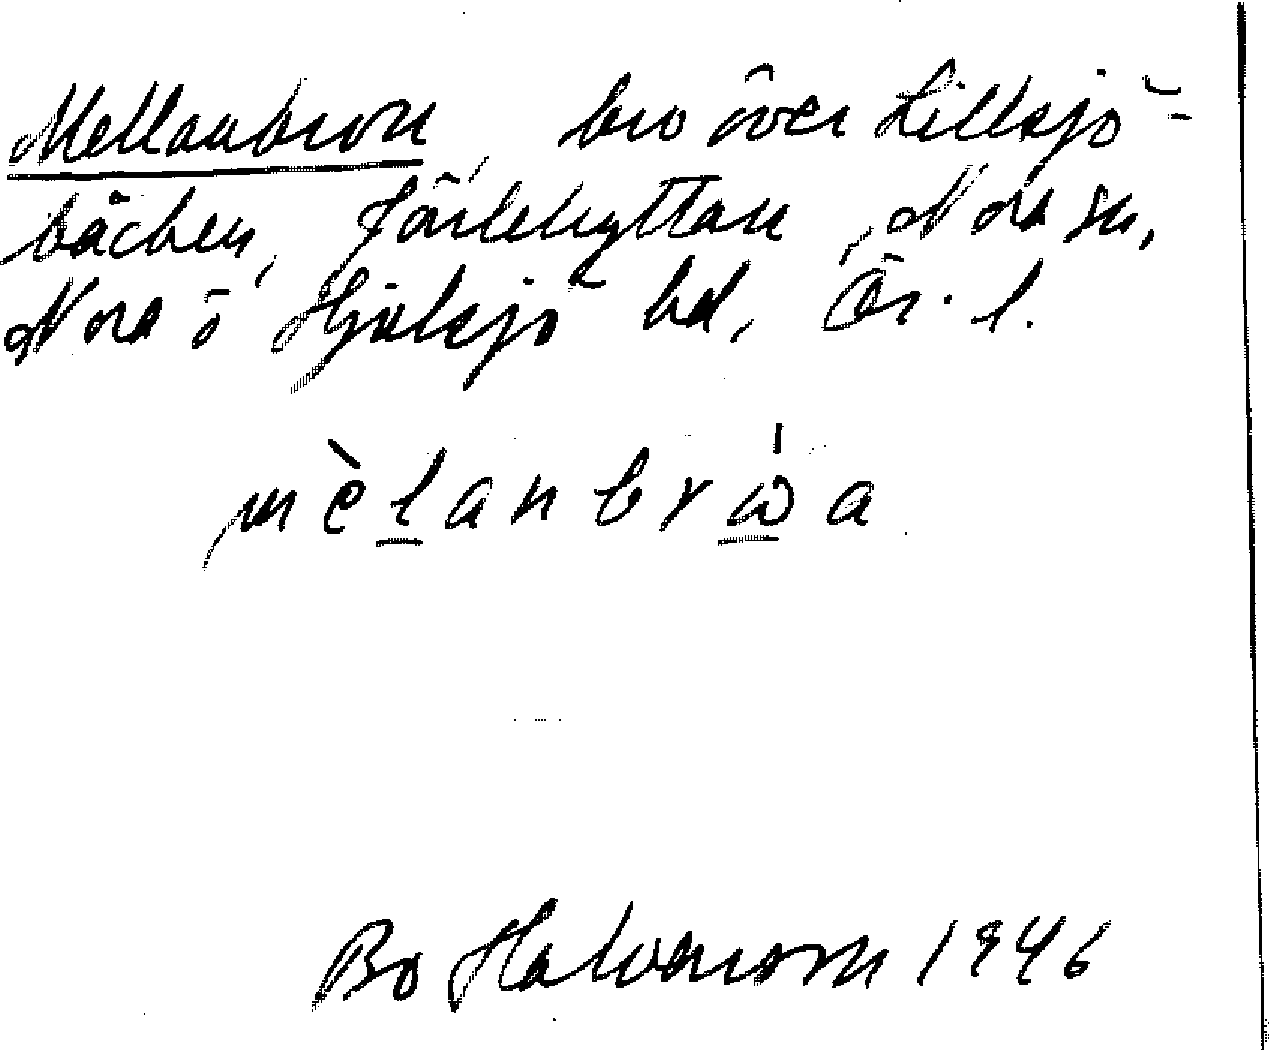 Mellanbron, bro över Lillsjö-
bäcken, Järlehyttan, Nora sn,
Nora ö Hjulsjö bd, Ör. l.
mèlanbrωa
Bo Halvarson 1946